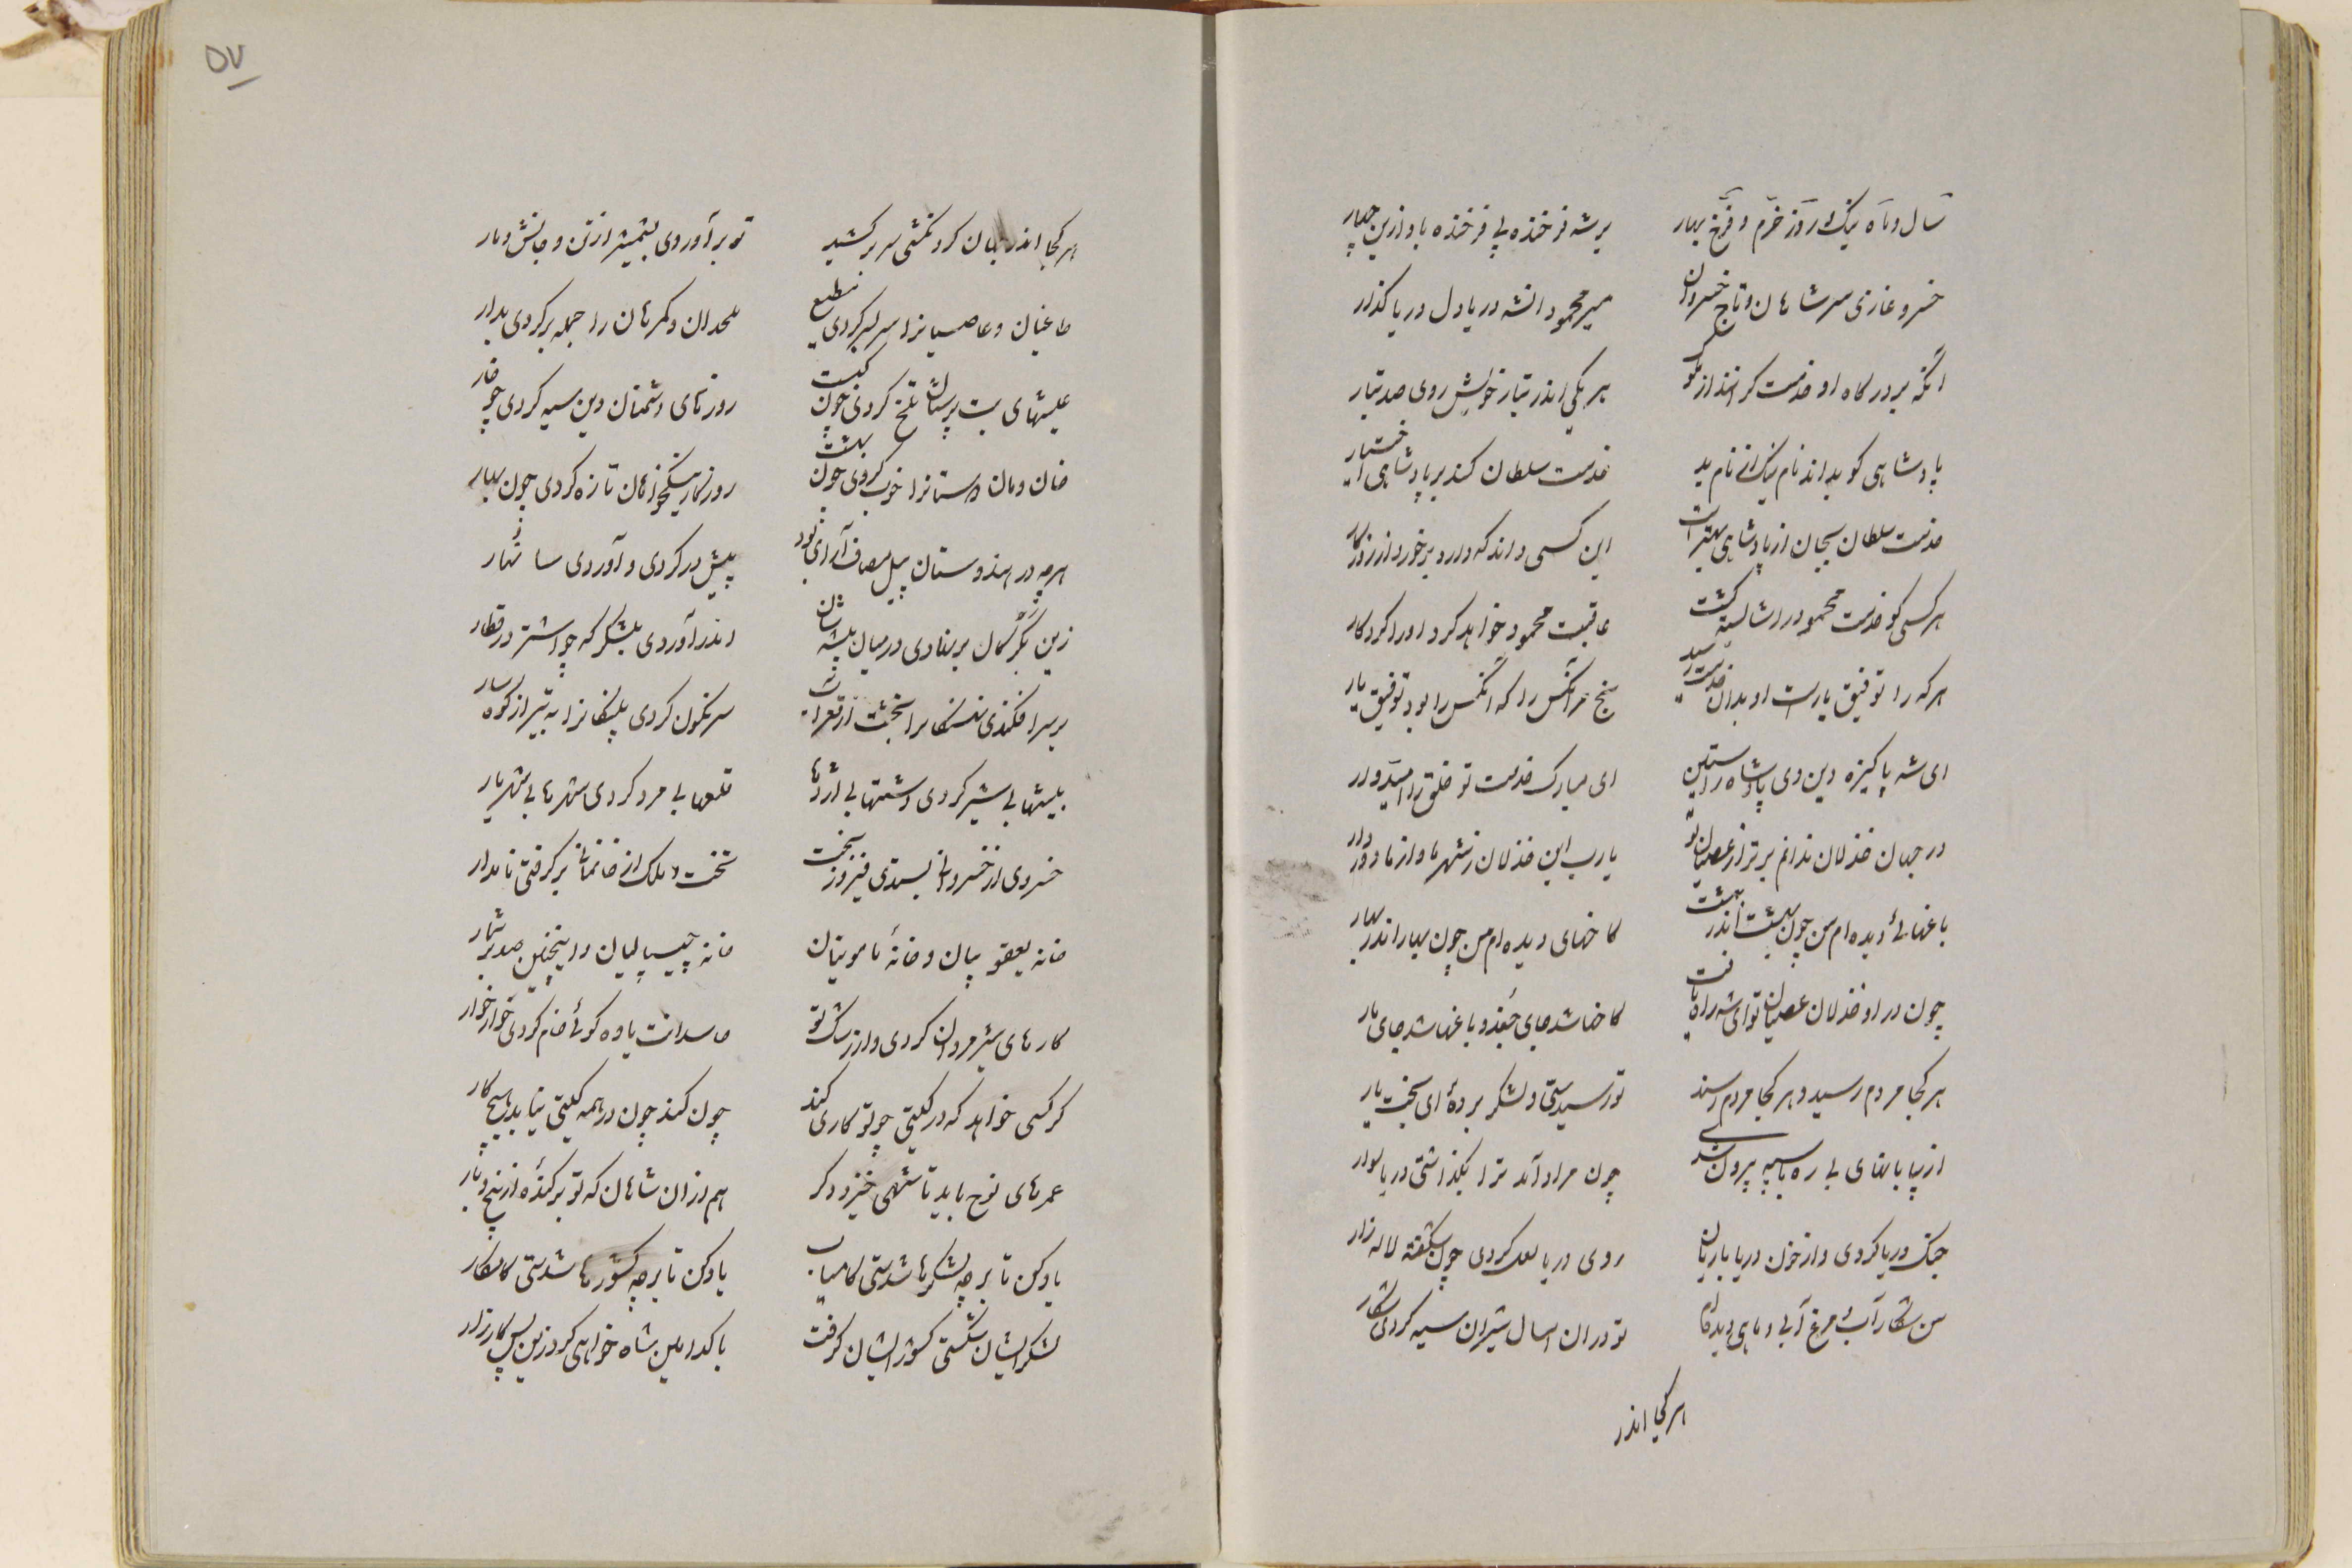 سال و ماه نیک و روز خرم و فرخ بهار
بر شه فرخنده پی فرخنده باد ازین چهار
خسرو غازی سر شاهان و تاج خسروان
میر محمود آن شه دریا دل دریا گذار
آنکه بر درگاه او خدمت کرانند از ملوک
هر یکی اندر تبار خویش روی صد تبار
پادشاهی کو بداند نام نیک از نام بد
خدمت سلطان کند بر پادشاهی اختیار
خدمت سلطان بجان از پادشاهی بهترست
این کسی داند که دارد برخورد از روزگار
هر کسی کو خدمت محمود را شایسته گشت
عاقبت محمود خواهد کرد او را کردگار
هر که را توفیق یارست او بدان خدمت رسید
بخ بخ مر آنکس را که آنکس را بود توفیق یار
ای شه پاکیزه دین وی پادشاه راستین
ای مبارک خدمت تو خلق را امیدوار
در جهان خذلان ندانم برتر از عصیان تو
یا رب این خذلان ز شهر ما و از ما دور دار
باغهائی دیده ام من چون بهشت اندر بهشت
کاخهای دیده ام من چون بهار اندر بهار
چون در او خذلان عصیان تو ای شه راه یافت
کاخها شد جای جغذ و باغها شد جای مار
هر کجا مردم رسید و هر کجا مردم رسند
تو رسیدستی و لشکر برده ای بخت یار
از بیابانهای بی ره با سپه بیرون شدی
چون مراد آمد ترا بگذاشتی دریا سوار
جنک دریا کردی و از خون دریا باریان
روی دریا لعل کردی چون شکفته لاله زار
من شکار آب مرغ آبی و ماهی دیده ام
تو در آن امسال شیران سیه کردی شکار
هر کجا اندر
۵۷
هر کجا اندر بیابان کرد نکشی سر بر کشید
تو بر آوردی بشمشیر از تن و جانش دمار
طاغیان و عاصیانرا سر بسر کردی مطیع
ملحدان و گمرهان را جمله بر کردی بدار
عیشهای بت پرستان تلخ کردی چون کبست
روزهای دشمنان دین سیه کردی چو قار
خان و مان دوستانرا خوب کردی چون بهشت
روزگار نیکخواهان تازه کردی چون بهار
هر چه در هندوستان پیل مصاف آرای بود
پیش در کردی و آوردی
زین بر گرگان بر نهادی در میان بیشه شان
اندر آوردی بلشکر که چو اشتر در قطار
بر سر افکندی نهنگانرا بخشت از قعر آب
سرنگون کردی پلنگانرا به تیر از کوهسار
بیشها بی شیر کردی دشتها بی اژدها
قلعها بی مرد کردی شهرها بی شهریار
خسروی از خسروان بستدی فیروز بخت
تخت و ملک از خانمان برگرفتی نامدار
خانه یعقوبیان و خانهٔ مامونیان
خانه چیپالیان و اینچنین صد بر شمار
کارهای شیر مردان کردی و از رشک تو
حاسدانت یاوه گوئی خام کردی خوار خوار
گر کسی خواهد که در گیتی چو تو کاری کند
چون کند چون در همه گیتی نیابد هیچ کار
عمرهای نوح باید تا شهی خیزد دگر
هم از آن شاهان که تو بر کندهٔ از بیخ و بار
یاد کن تا بر چه لشکرها شدستی کامیاب
یاد کن تا بر چه کشورها شدستی کامکار
لشکر ایشان شکستی کشور ایشان گرفت
با کدامین شاه خواهی کرد زین پس کارزار